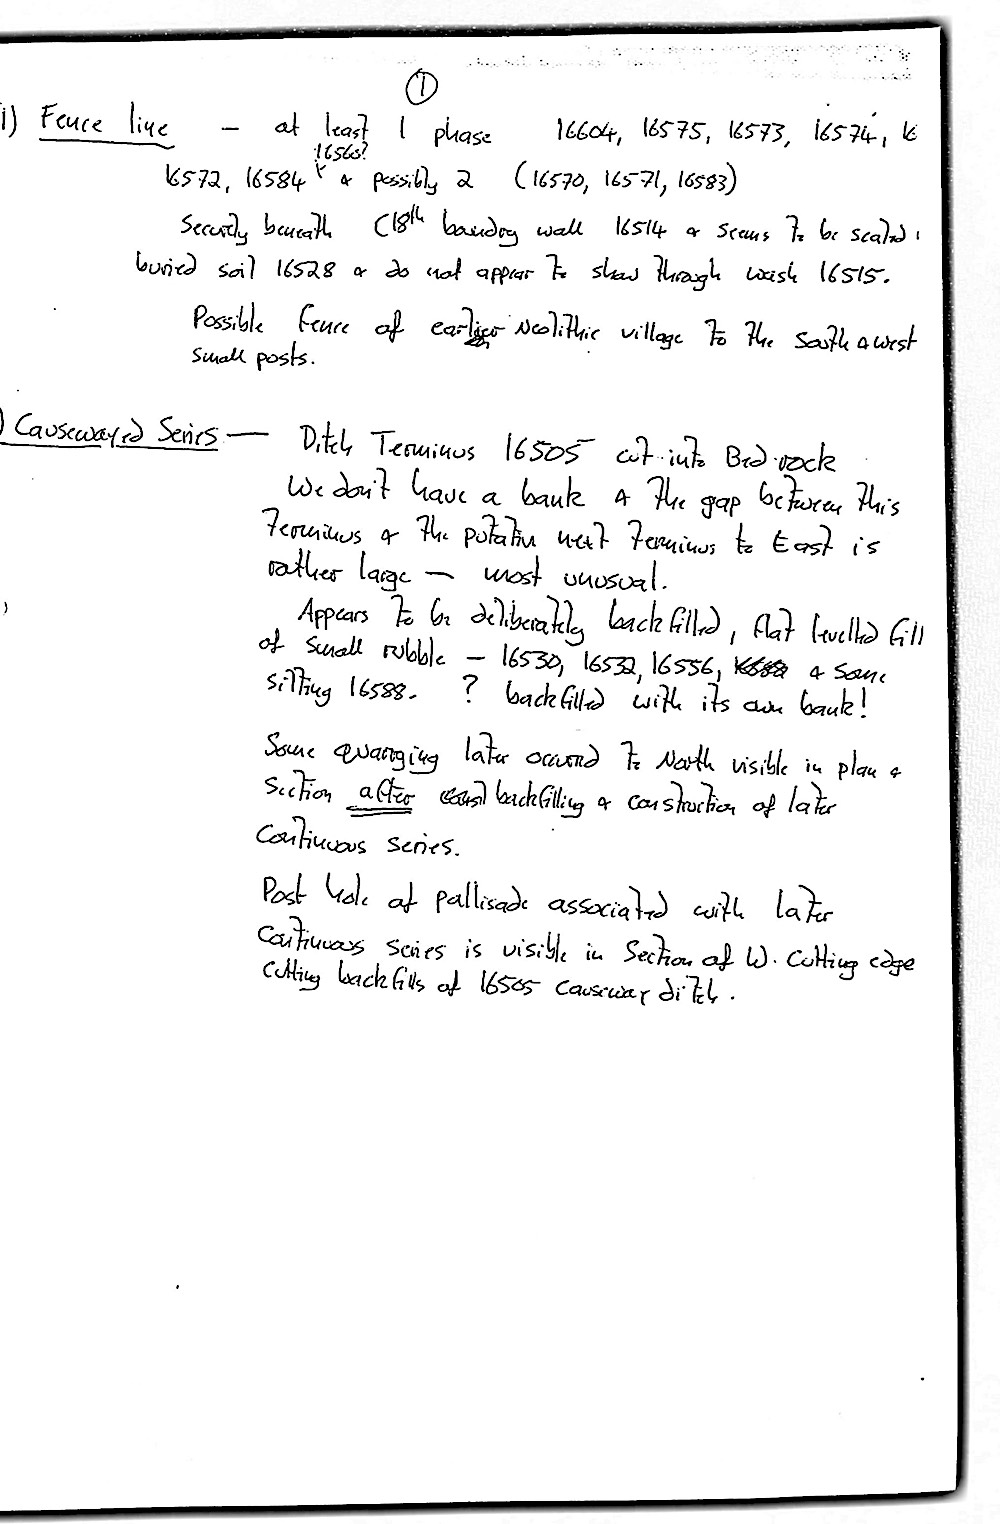 ①
i) Fence line – at least 1 phase 16604, 16575, 16573, 16574, 16
16560?
16572, 16584 & possibly 2 (16570, 16571, 16583)
Securely beneath C18th boundry wall 16514 & seems to be sealed i
buried soil 16528 & do not appear to show through wash 16515.
Possible fence of earlier Neolithic village to the South & west
small posts.
) Causewayed Series – Ditch Terminus 16505 cut into Bedrock
We don't have a bank & the gap between this
Terminus & the putative next Terminus to East is
rather large – most unusual.
)
Appears to be deliberately backfilled, flat levelled fill
of small rubble – 16530, 16532, 16556, & some
silting 16588. ? backfilled with its own bank!
Some quarrying later occurred to North visible in plan &
section after backfilling & construction of later
Continuous series.
Post hole of pallisade associated with later
Continuous series is visible in Section of W. Cutting edge
cutting backfills of 16505 causeway ditch.